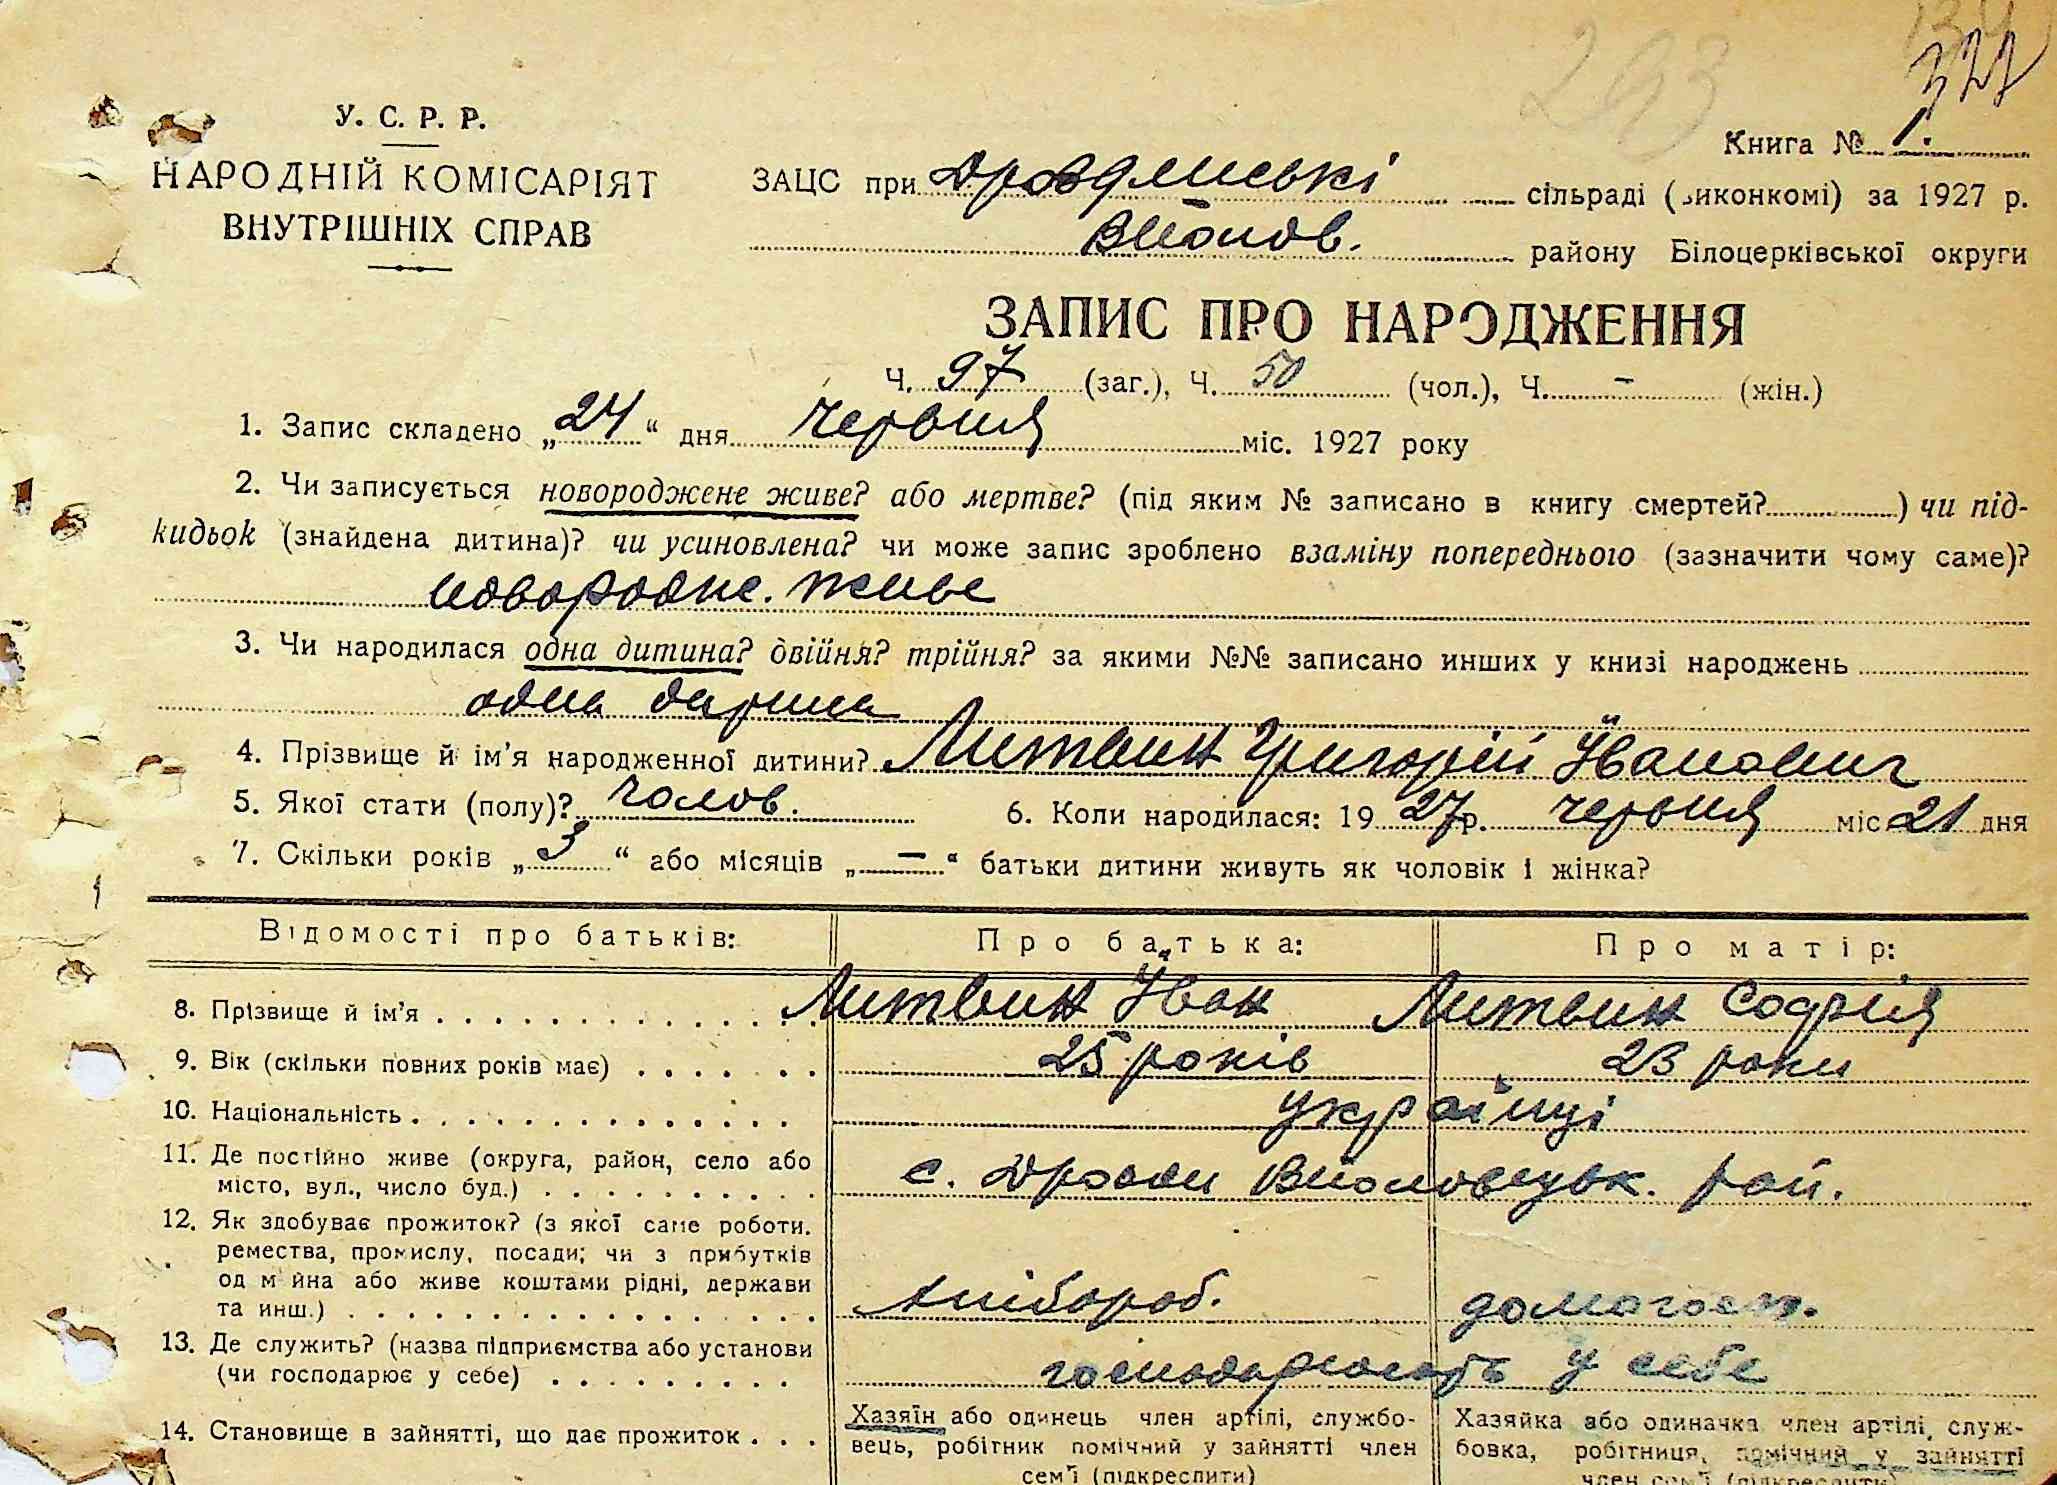 293
327
У. С. Р. Р.
НАРОДНІЙ КОМІСАРІЯТ
ВНУТРІШНІХ СПРАВ
Книга № 1.
ЗАЦС при сільраді (виконкомі) за 1927 р.
району Білоцерківської округи
ЗАПИС ПРО НАРОДЖЕННЯ
Ч. 97 (заг.), Ч. 50 (чол.), Ч. – (жін.)
1. Запис складено „24“ дня червня міс. 1927 року
2. Чи записується новороджене живе? або мертве? (під яким № записано в книгу смертей? ) чи під-
кидьок (знайдена дитина)? чи усиновлена? чи може запис зроблено взаміну попереднього (зазначити чому саме)?
живе
3. Чи народилася одна дитина? двійня? трійня? за якими №№ записано инших у книзі народжень
одна
4. Прізвище й ім'я народженної дитини? Литвин Григорій Іванович
5. Якої стати (полу)? чолов. 6. Коли народилася: 1927 р. червня міс 21 дня
7. Скільки років „3“ або місяців „–“ батьки дитини живуть як чоловік і жінка?
Відомості про батьків: Про батька: Про матір:
8. Прізвище й ім'я Литвин Іван Литвин Софія
9. Вік (скільки повних років має) 25 років 23 роки
10. Національність українці
11. Де постійно живе (округа, район, село або
місто, вул., число буд.) с. рай.
12. Як здобуває прожиток? (з якої саме роботи.
ремества, промислу, посади; чи з прибутків
од майна або живе коштами рідні, держави
та инш.) хлібороб. домогосп.
13. Де служить? (назва підприємства або установи
(чи господарює у себе) господарюють у себе
14. Становище в зайнятті, що дає прожиток
Хазяїн або одинець член артілі, службо-
вець, робітник помічний у зайнятті член
сем'ї (підкреслити)
Хазяйка або одиначка член артілі, служ-
бовка, робітниця, помічний у зайнятті
член сем'ї (підкреслити)